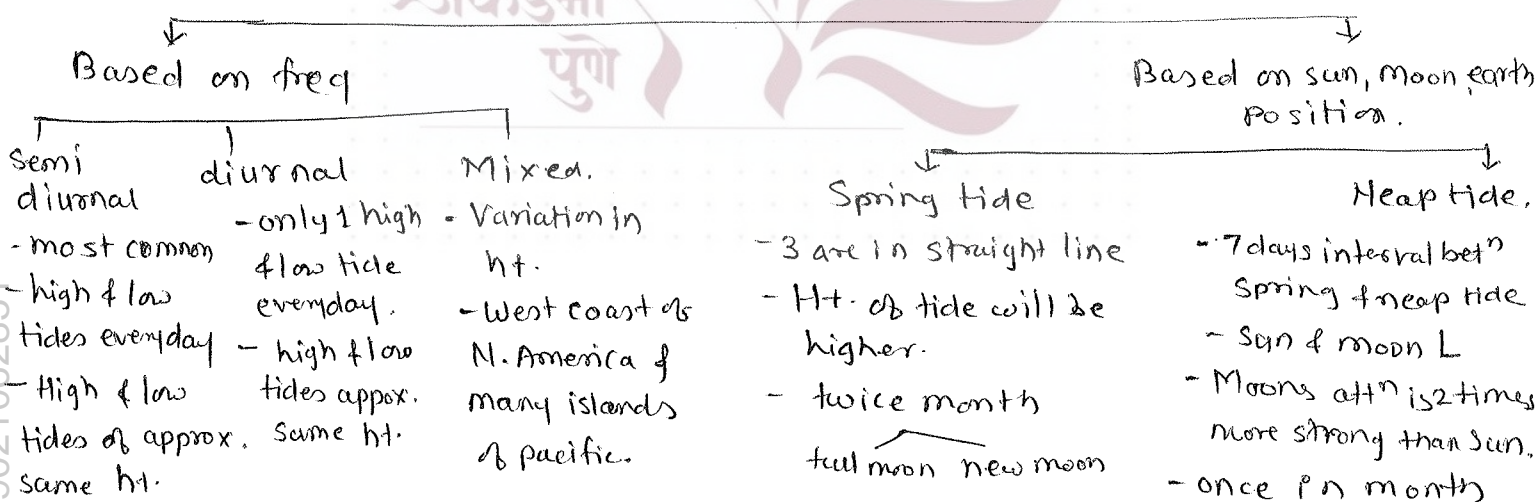 पुणे
Based on freq
Based on sun, moon, earth
position.
semi
diurnal
- most common
- high & low
tides everyday
- High & low
tides of approx.
same ht.
diurnal
- only 1 high
& low tide
everyday.
- high & low
tides appox.
same ht.
Mixed.
- Variation in
ht.
- West coast of
N. America &
many islands
of pacific.
Spring tide
- 3 are in straight line
- Ht. of tide will be
higher.
- twice month
full moon new moon
Neap tide.
- 7 days interval betn
Spring & neap tide
- Sun & moon L
- Moons attn is 2 times
more strong than sun.
- once in month